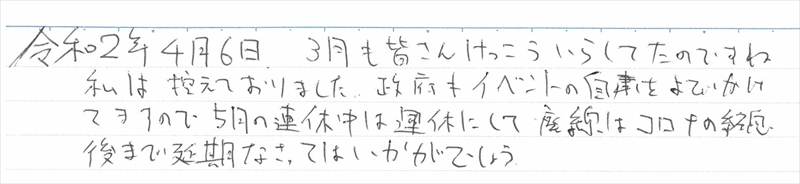 令和2年4月6日 3月も皆さんけっこういらしてたのですね
私は控えておりました。政府もイベントの自粛をよびかけ
てますので5月の連休中は運休にして廃線はコロナの終息
後まで延期なさってはいかがでしょう